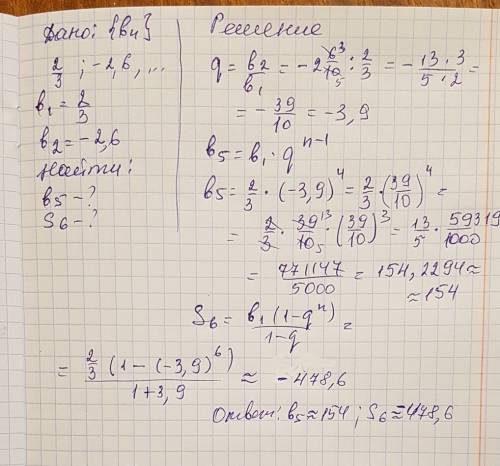 Дано: {вn}
2/3 ; -2,6, ...
в₁ = 2/3
в₂ = -2,6
Найти:
в5 - ?
S6 - ?
Решение
q = в2/в₁ = -2 6³/10₅ : 2/3 = - 13·3/5·2 =
= - 39/10 = -3,9
в5 = в₁ · qⁿ⁻¹
в5 = 2/3 · (-3,9)⁴ = 2/3 · (39/10)⁴ =
= 2/3 · 39¹³/10₅ · (39/10)³ = 13/5 · 59319/1000
= 771147/5000 = 154,2294 ≈
≈ 154
S6 = в₁(1-qⁿ)/1-q =
= 2/3 (1 - (-3,9)⁶)/1+3,9 ≈ -478,6
Ответ: в5 ≈ 154 ; S6 ≈ -478,6